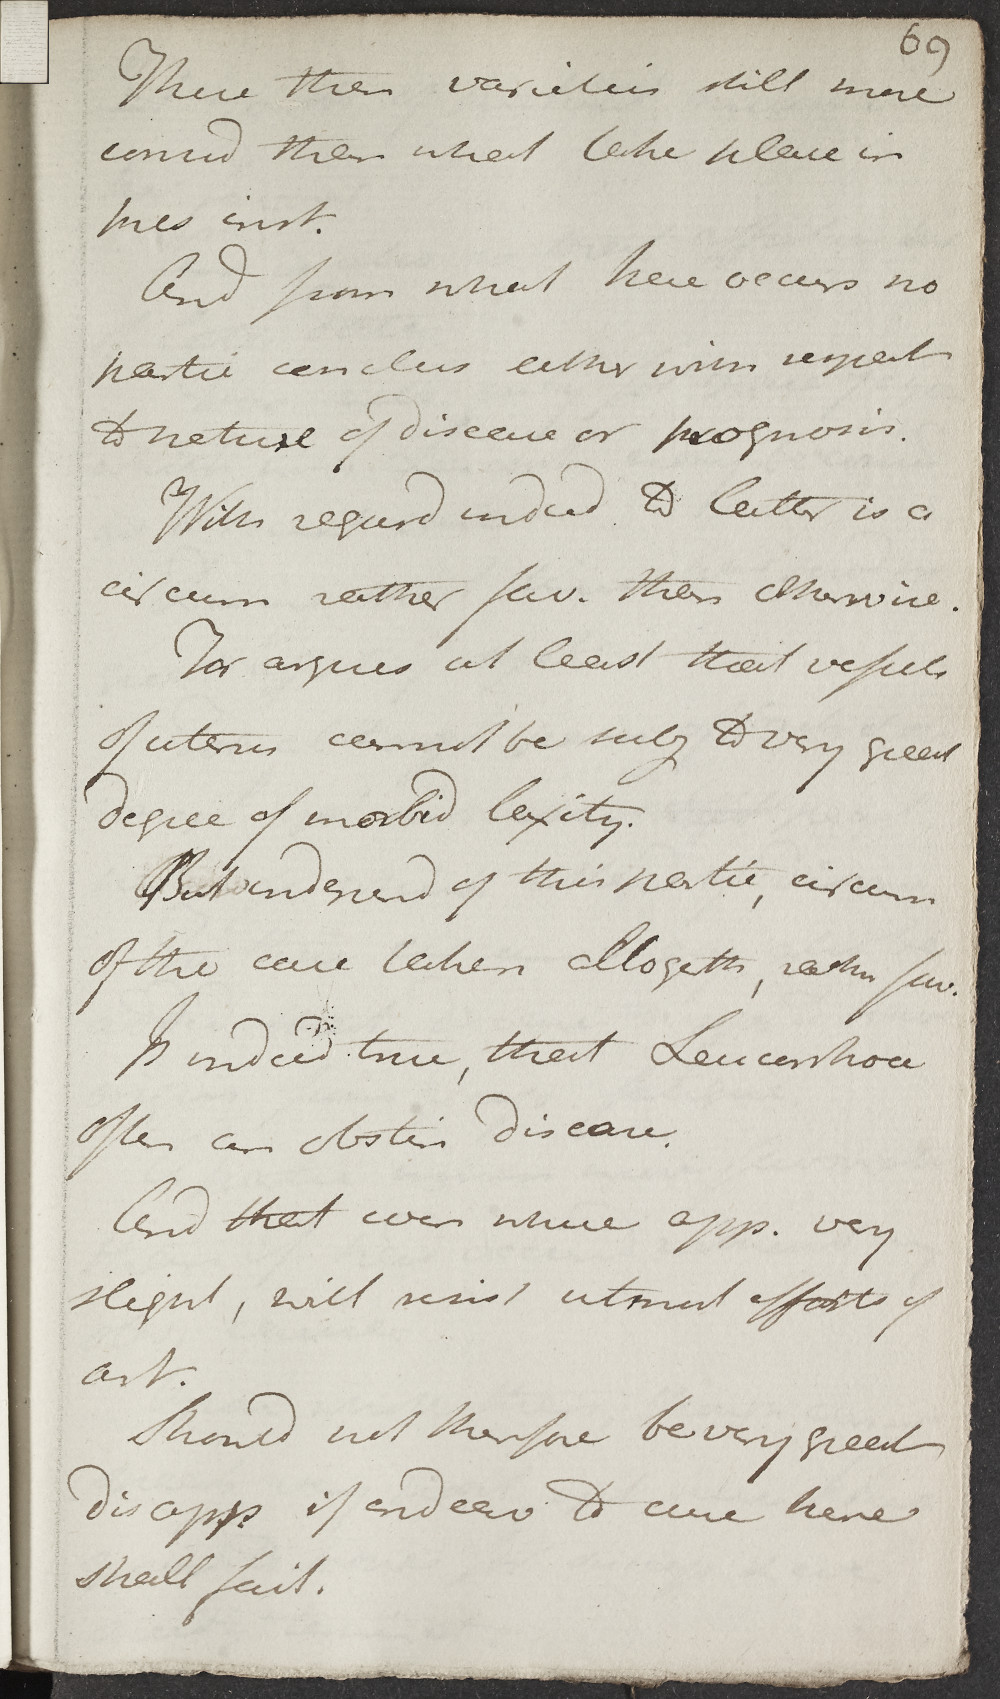 69
These then varieties still more
consid then what take place in
pres inst.
And from what here occurs no
partic conclus either with respect
to nature of disease or prognosis.
With regard indeed to latter is a
circum rather fav. then otherwise.
For argues at least that vessels
of uterus cannot be subj to very great
degree of morbid laxity.
But independ of this partic, circum
of the case taken altogeth, rather fav.
Is indeed true, that Leucorrhoea
often an obstin disease.
And that even where app. very
slight, will resist utmost efforts of
art.
Should not therefore be very great
disapp if endeav to cure here
shall fail.